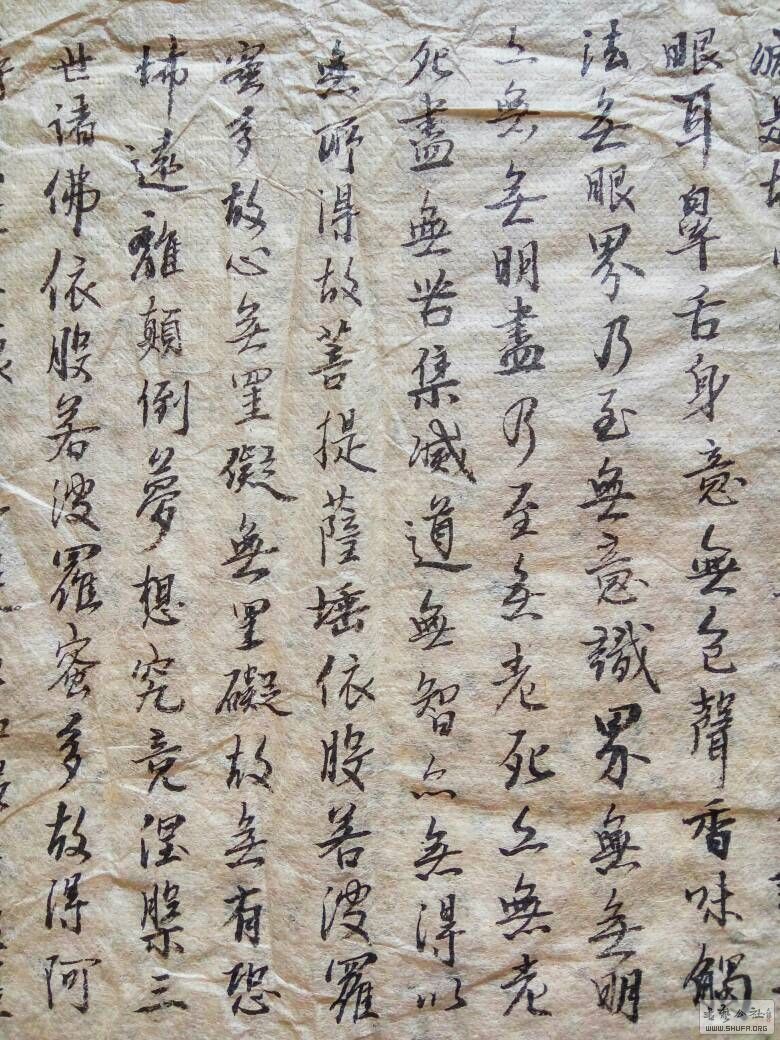 眼耳鼻舌身意無色聲香味觸
法無眼界乃至無意識界無無明
亦無無明盡乃至無老死亦無老
死盡無苦集滅道無智亦無得以
無所得故菩提薩埵依般若波羅
蜜多故心無罣礙無罣礙故無有恐
怖遠離顛倒夢想究竟涅槃三
世諸佛依般若波羅蜜多故得阿
WWW.SHUFA.ORG